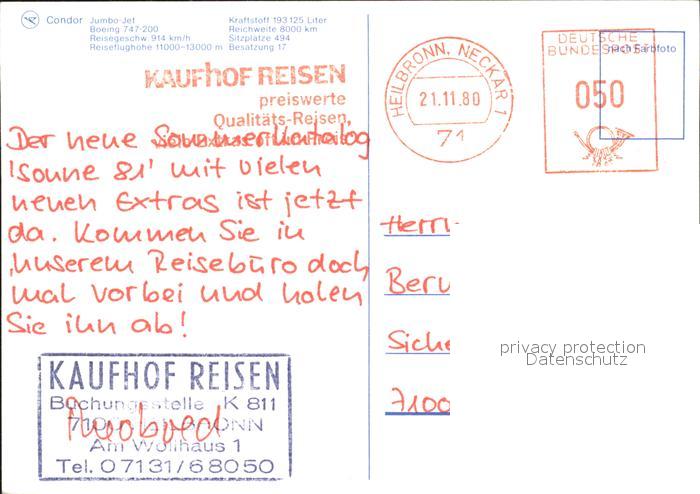 Condor Jumbo-Jet
Boeing 747-200
Reisegeschw. 914 km/h
Reiseflughöhe 11000-13000 m
Kraftstoff 193125 Liter
Reichweite 8000 km
Sitzplätze 494
Besatzung 17
KAUFHOF REISEN
preiswerte
Qualitäts-Reisen,
HEILBRONN, NECKAR 1
21.11.80
71
DEUTSCHE
BUNDESPOST
050
nach Farbfoto
Der neue Sommerkatalog
'Sonne 81' mit vielen
neuen Extras ist jetzt
da. Kommen Sie in
unserem Reisebüro doch
mal vorbei und holen
Sie ihn ab!
Herrn
Beru
Siche
7100
KAUFHOF REISEN
Buchungsstelle K 811
7100 HEILBRONN
Am Wollhaus 1
Tel. 07131/68050
privacy protection
Datenschutz